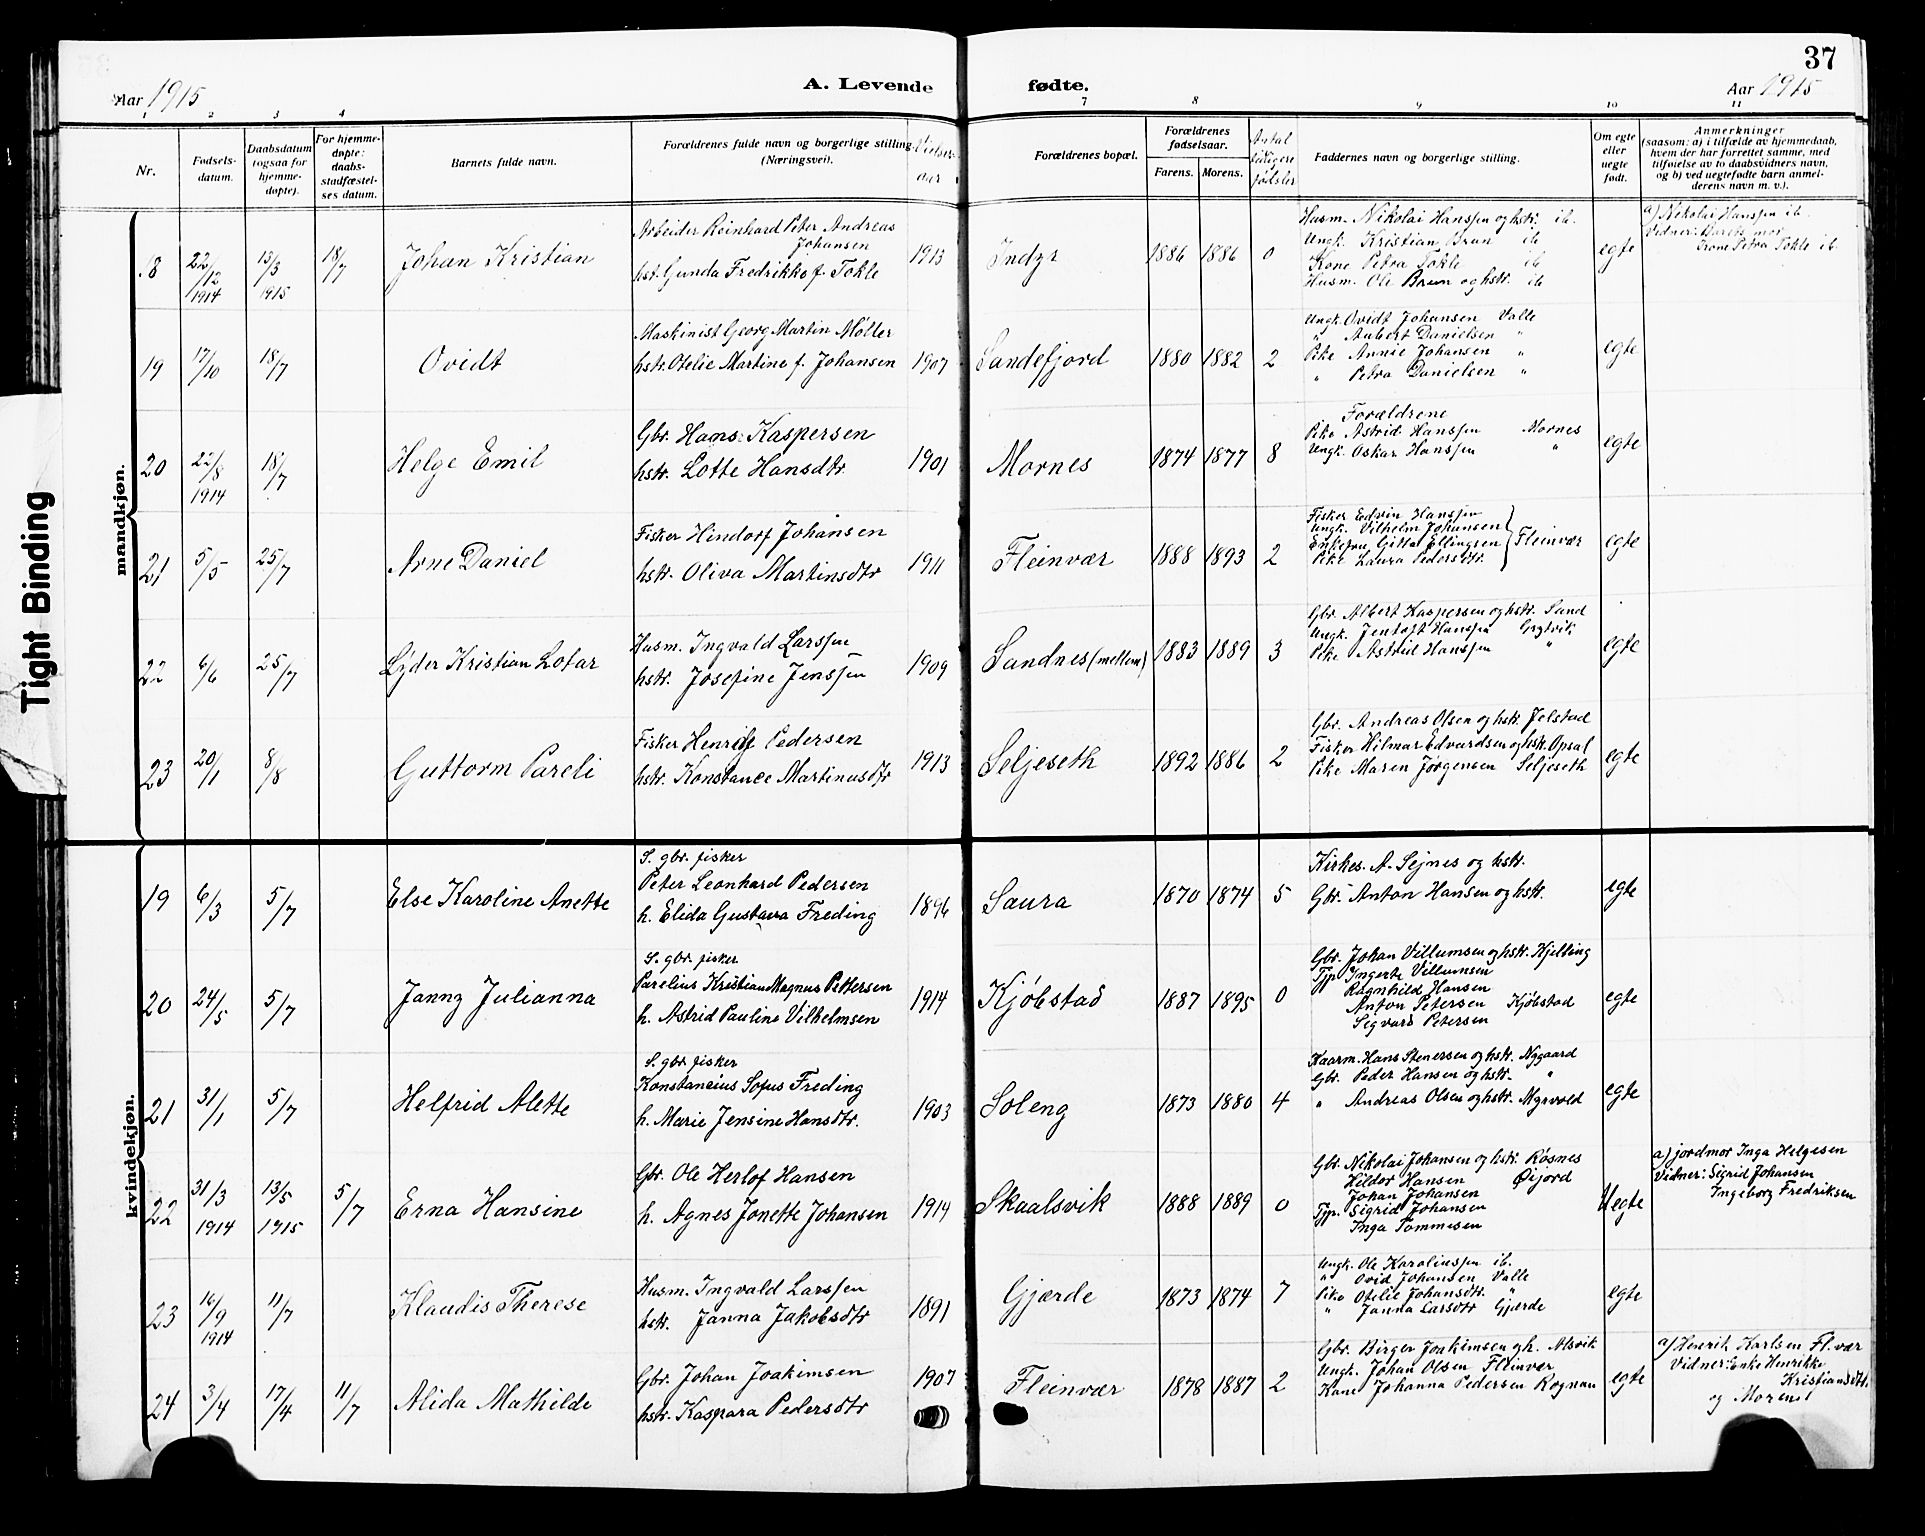 37
Aar 1915
A. Levende fødte.
Aar 1915
1 2 3 4 7 8 9 10 11
Nr.
Fødsels-
datum.
Daabsdatum
(ogsaa for
hjemme-
døpte).
For hjemme-
døpte:
daabs-
stadfæstel-
ses datum.
Barnets fulde navn.
Forældrenes fulde navn og borgerlige stilling
(Næringsvei).
Vielses
aar
Forældrenes bopæl.
Forældrenes
fødselsaar.
Farens. Morens.
Antal
tidligere
fødsler
Faddernes navn og borgerlige stilling.
Om egte
eller
uegte
født.
Anmerkninger
(saasom: a) i tilfælde av hjemmedaab,
hvem der har forrettet samme, med
tilføielse av to daabsvidners navn,
og b) ved uegtefødte barn anmel-
derens navn m. v.).
Tight Binding
mandkjøn.
18 22/12 1914 13/3 1915 18/7 Johan Kristian
Arbeider Reinhard Peter Andreas
Johansen
hst. Gunda Fredrikke f. Tokle
1913 Indyr 1886 1886 0
Husm. Nikolai Hanssen og hstr. ib.
Ungk. Kristian Brun ib
Kone Petra Tokle ib
Husm. Ole Brun og hstr. ib
egte
a) Nikolai Hanssen ib.
Vidner: Barets mor
Kone Petra Tokle ib.
19 17/10 18/7 Ovidt
Maskinist Georg Martin Møller
hstr. Otelie Martine f. Johansen
1907 Sandefjord 1880 1882 2
Ungk. Ovidt Johansen Valle
" Aubert Danielsen "
Pike Annie Johansen "
" Petra Danielsen "
egte
20 22/8 1914 18/7 Helge Emil
Gbr. Hans Kaspersen
hstr. Lotte Hansdtr.
1901 Mornes 1874 1877 8
Forældrene
Pike Astrid Hanssen Mornes
Ungk. Oskar Hanssen "
egte
21 5/5 25/7 Arne Daniel
Fisker Hindorf Johansen
hstr. Oliva Martinsdtr
1911 Fleinvær 1888 1893 2
Fisker Edvin Hanssen
Ungk. Vilhelm Johansen
Enkefru Gitta Ellingsen Fleinvær
Pike Laura Pedersdtr.
egte
22 6/6 25/7 Lyder Kristian Lotar
Husm. Ingvald Larssen
hstr. Josefine Jenssen
1909 Sandnes (mellem) 1883 1889 3
Gbr. Albert Kaspersen og hstr. Sand
Ungk. Jentoft Hanssen Grytvik
Pike Astrid Hanssen "
egte
23 20/1 8/8 Guttorm Pareli
Fisker Henrik Pedersen
hstr. Konstance Martinusdtr
1913 Seljeseth 1892 1886 2
Gbr. Andreas Olsen og hstr. Jelstad
Fisker Hilmar Edvardsen og hstr. Opsal
Pike Maren Jørgensen Seljeseth
egte
kvindekjøn.
19 6/3 5/7 Else Karoline Anette
S. gbr. fisker
Peter Leonhard Pedersen
h. Elida Gustava Freding
1896 Saura 1870 1874 5
Kirkes. A. Sejnes og hstr.
Gbr. Anton Hansen og hstr.
egte
20 24/5 5/7 Janny Julianna
S. gbr. fisker
Parelius Kristian Magnus Pettersen
h. Astrid Pauline Vilhelmsen
1914 Kjøbstad 1887 1895 0
Gbr. Johan Villumsen og hstr. Kjelling
Tjp. Ingerte Villumsen
Ragnhild Hansen
Anton Petersen Kjøbstad
Segvard Petersen
egte
21 31/1 5/7 Helfrid Alette
S. gbr. fisker
Konstancius Sofus Freding
h. Marie Jensine Hansdtr.
1903 Soleng 1873 1880 4
Kaarm. Hans Stenersen og hstr. Nygaard
Gbr. Peder Hansen og hstr. "
" Andreas Olsen og hstr. Myrvold
egte
22 31/3 1914 13/5 1915 5/7 Erna Hansine
Gbr. Ole Herlof Hansen
h. Agnes Jonette Johansen
1914 Skaalsvik 1888 1889 0
Gbr. Nikolai Johansen og hstr. Røsnes
Hildor Hansen Øijord
Johan Johansen
Tjp. Sigrid Johansen
Inga Tommesen
Uegte
a) jordmor Inga Helgesen
Vidner: Sigrid Johansen
Ingeborg Fredriksen
23 16/9 1914 11/7 Klaudis Therese
Husm. Ingvald Larssen
hstr. Janna Jakobsdtr
1891 Gjærde 1873 1874 7
Ungk. Ole Karoliussen ib.
" Ovid Johansen Valle
Pike Otelie Johansdtr. "
" Janna Larsdtr Gjærde
egte
24 3/4 17/4 11/7 Alida Mathilde
Gbr. Johan Joakimsen
hstr. Kaspara Pedersdtr
1907 Fleinvær 1878 1887 2
Gbr. Birger Joakimsen og h. Alsvik
Ungk. Johan Olsen Fleinvær
Kone Johanna Pedersen Rognan
egte
a) Henrik Karlsen Fl.vær
Vidner: Enke Henrikke
Kristiansdtr.
og Moren